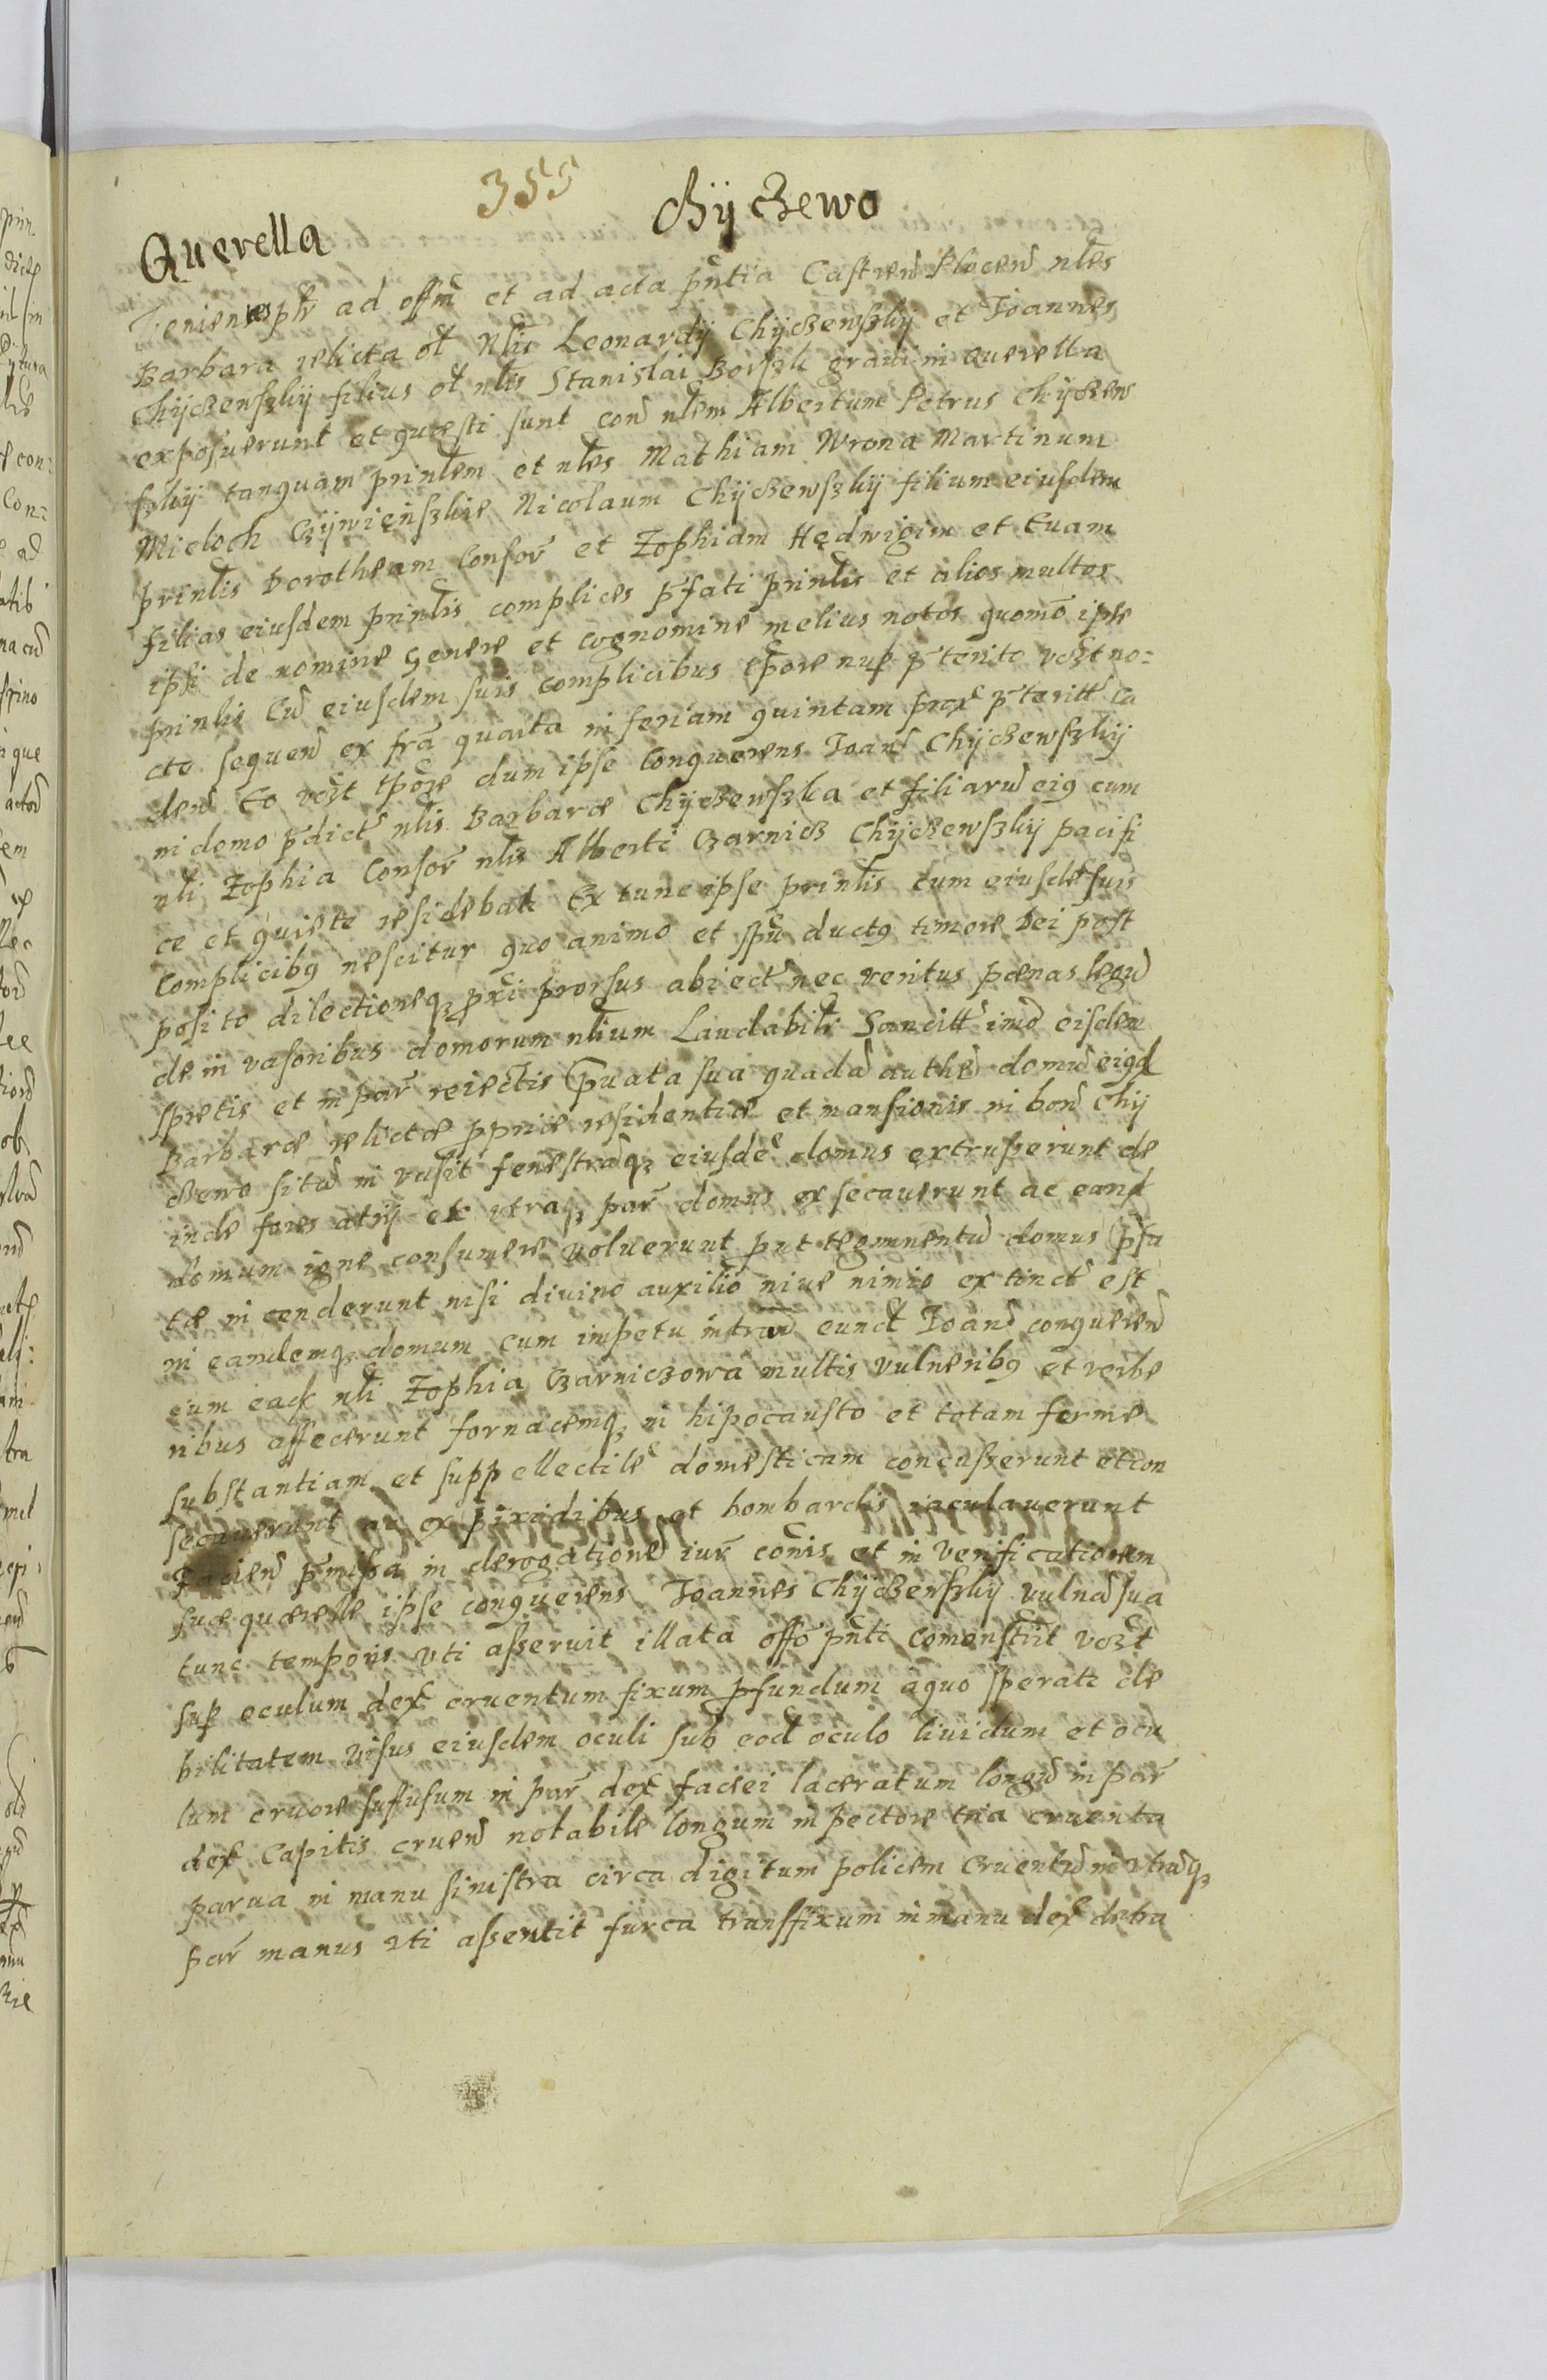 355
Chÿczewo
Querella
Venientes pltr ad offm et ad acta pntia Castren Plocen nles
Barbara relicta ol Nlis Leonardÿ Chÿczewskÿ et Joannes
Chÿczewskÿ filius ol nlis Stanislai Borszk graui in querella
exposuerunt et quæsti sunt con nlem Albertum Petrus Chÿczew
skÿ tanquam prinlem et nles Mathiam Wrona Martinum
Mieloch Nicolaum Chÿczewskÿ filium eiusdem
prinlis Dorotheam Consor et Zophiam Hedwigim et Euam
filias eiusdem prinlis complices pfati prinlis et alios multos
ipsi de nomine genere et cognomine melius notos quomo ipse
prinlis Cu eiusdem suis complicibus tpore nup pterito vozt no=
cte sequen ex fra quarta in feriam quintam prox pteritt ca
den Eo vozt tpore dum ipse Conquerens Joans Chÿczewskÿ
in domo pdict nlis Barbaræ Chÿczewska et filiaru eiq cum
nli Zophia Consor nlis Alberti Czarnicz Chÿczewskÿ pacifi
ce et quiete residebat Ex tunc ipse prinlis cum eiusde suis
Complicibq nescitur quo animo et spu ductq timore Dei post
posito dilectioneq pxi prorsus abiect nec veritus pænas legu
de inuasoribus domorum nlium Laudabilr Sancitt imo eisdem
spretis et in par reiectis puata sua quada authe domu eiqd
Barbaræ relictæ ppriæ residentiæ et mansionis in bon Chÿ
czewo sitam inuasit fenestraq eiusde domus extruserunt de
inde fores atrÿ ex vtraq par domus exsecauerunt ac eand
domum igne consumere voluerunt put tegumentu domus pfa
tæ incenderunt nisi diuino auxilio niue nimio extinct est
in eandemq domum cum impetu intran eunct Joans conqueren
cum ead nli Zophia Czarniczowa multis vulneribq et verbe
ribus affecerunt fornacemq in hipocausto et totam ferme
substantiam et suppellectile domesticam concusserunt et con
secauerunt ac ex pixidibus et bombardis iaculauerunt
Facien pmissa in derogatione iur cois et in verificationem
suæ querellæ ipse conquerens Joannes Chÿczewskÿ vulna sua
tunc temporis vti asseruit illata offo pnti comonstrit vozt
sup oculum dex cruentum fixum pfundum a quo sperati de
bilitatem visus eiusdem oculi sub eod oculo liuidum et ocu
lum cruore sufusum in par dex faciei laceratum longu in par
dex Capitis cruen notabile longum in pectore tria cruenta
parua in manu sinistra circa digitum policem cruentu in vtraq
par manus vti asserit furca transfixum in manu dex detra